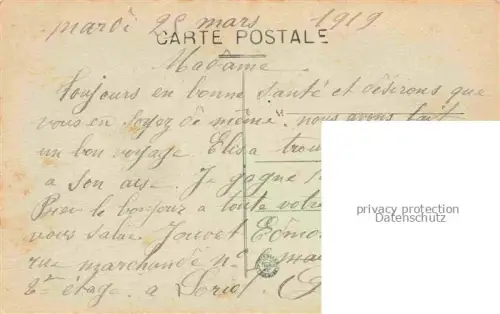 mardi 25 mars 1919
CARTE POSTALE
Madame
Toujours en bonne santé et désirons que
vous en soyez de même. nous avons fait
un bon voyage Elisa trou
a son aise. Je gagne
privacy protection data
Bien le bonjour a toute votre
vous salue Jouvet Edmo
rue marchande n°
2me étage. a Loriol